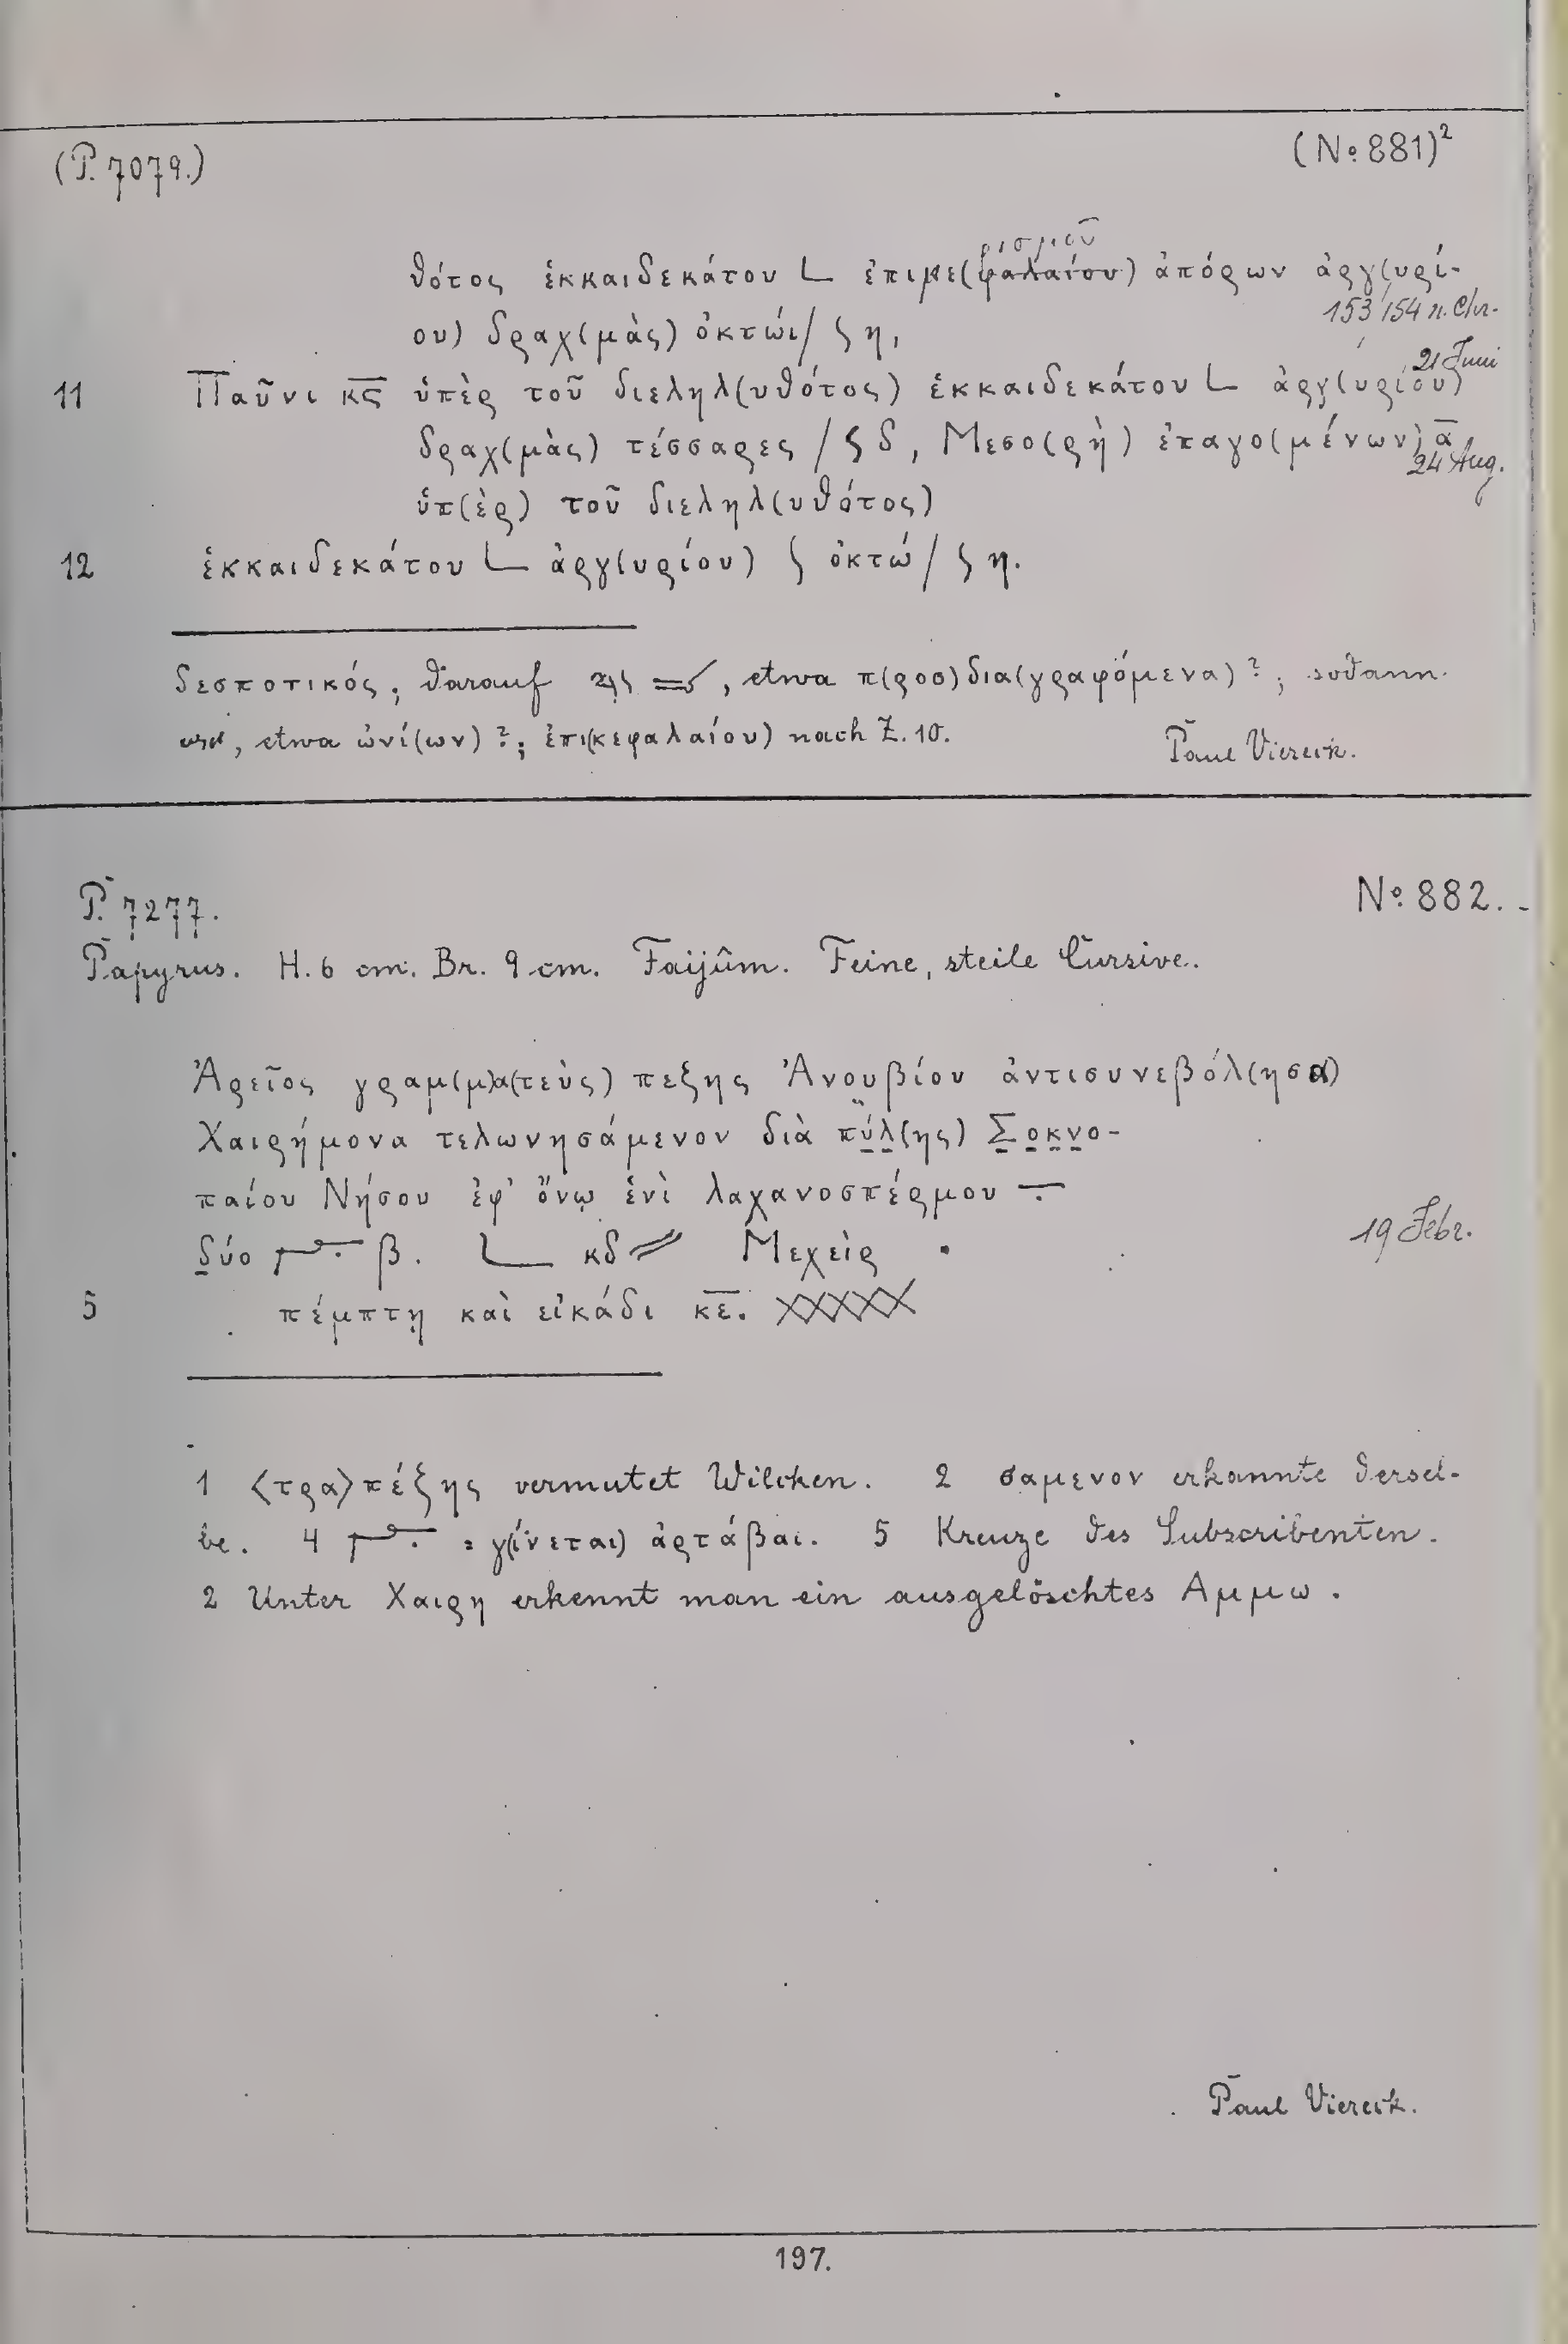 (P. 7079.)
(No: 881)²
ρισμοῦ
θότος ἑκκαιδεκάτου L ἐπικε(φαλαίου) ἀπόρων ἀργ(υρί-
153/154 n. Chr.
ου) δραχ(μὰς) ὀκτώι / ʃ η,
21 Juni
11 Παῦνι κς ὑπὲρ τοῦ διεληλ(υθότος) ἑκκαιδεκάτου L ἀργ(υρίου)
δραχ(μὰς) τέσσαρες / ʃ δ, Μεσο(ρὴ) ἐπαγο(μένων) α
24 Aug.
ὑπ(ὲρ) τοῦ διεληλ(υθότος)
12 ἑκκαιδεκάτου L ἀργ(υρίου) ʃ ὀκτώ / ʃ η.
δεσποτικός; darauf , etwa π(ροσ)δια(γραφόμενα)?; sodann
, etwa ὠνί(ων)?; ἐπι(κεφαλαίου) nach Z. 10.
Paul Viereck.
P. 7277.
No: 882.
Papyrus. H. 6 cm. Br. 9 cm. Faijûm. Feine, steile Cursive.
Ἀρεῖος γραμ(μ)α(τεὺς) πεξης Ἀνουβίου ἀντισυνεβόλ(ησα)
Χαιρήμονα τελωνησάμενον διὰ πύ̣λ̣(ης) Σ̣ο̣κ̣ν̣ο-
παίου Νήσου ἐφ' ὄνῳ ἑνὶ λαχανοσπέρμου ∸
δ̣ύο β. L κδ// Μεχεὶρ
19 Febr.
5 πέμπτῃ καὶ εἰκάδι κε. XXXXX
1 〈τρα〉πέξης vermutet Wilcken. 2 σαμενον erkannte dersel-
be. 4 = γ(ίνεται) ἀρτάβαι. 5 Kreuze des Subscribenten.
2 Unter Χαιρη erkennt man ein ausgelöschtes Αμμω.
Paul Viereck.
197.